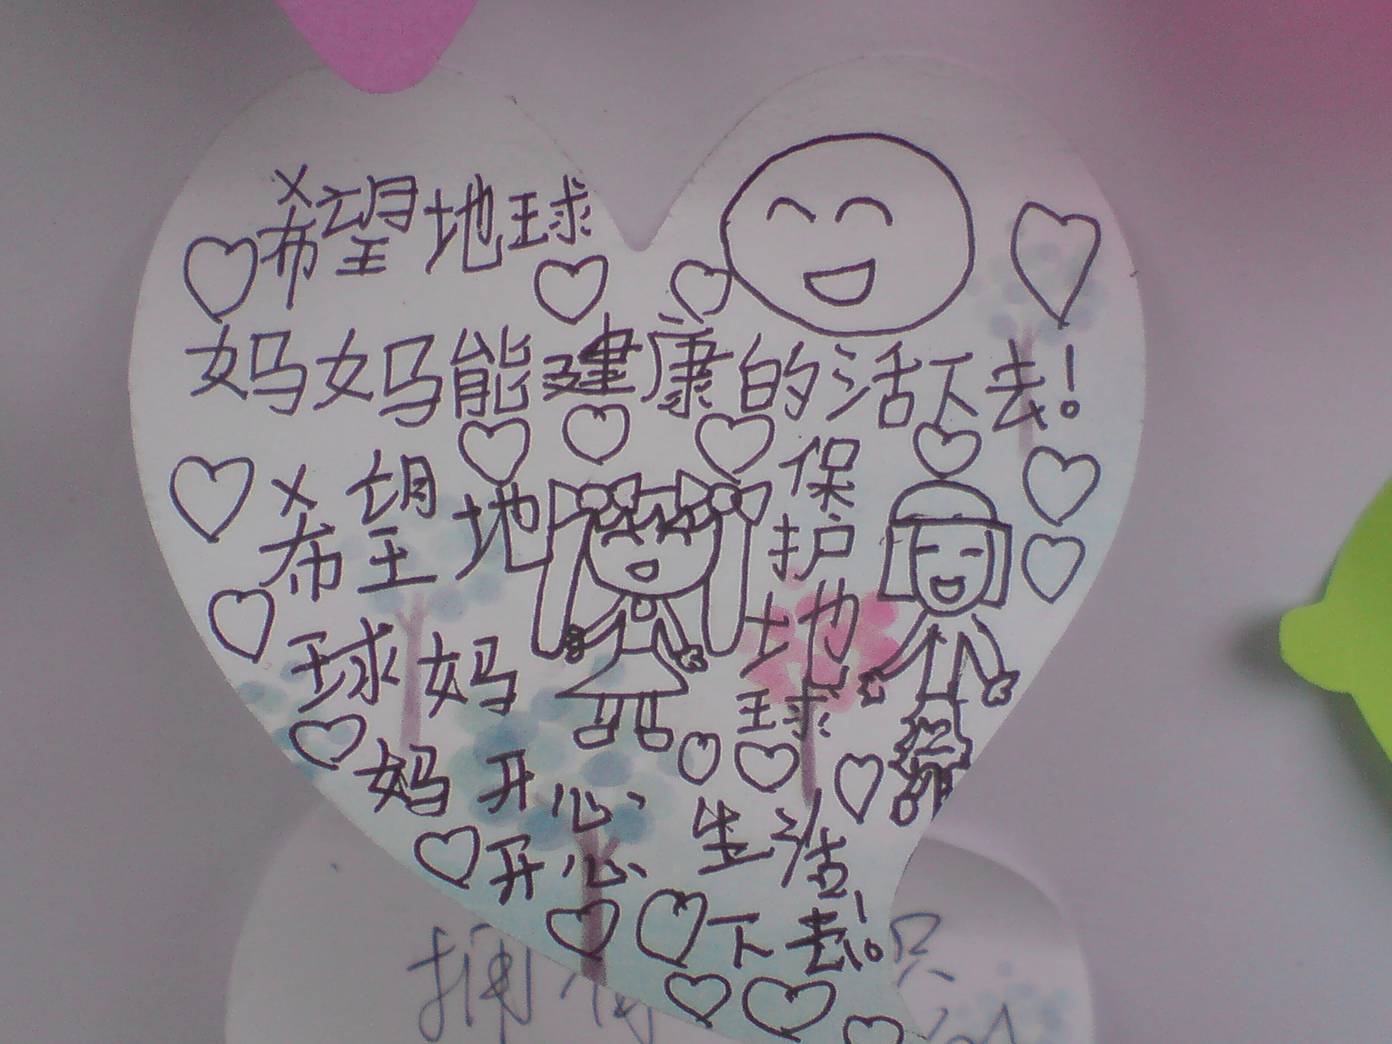 希望地球
妈妈能建康的活下去!
希望地
球妈
妈开心
开心生活
下去!
保护地球